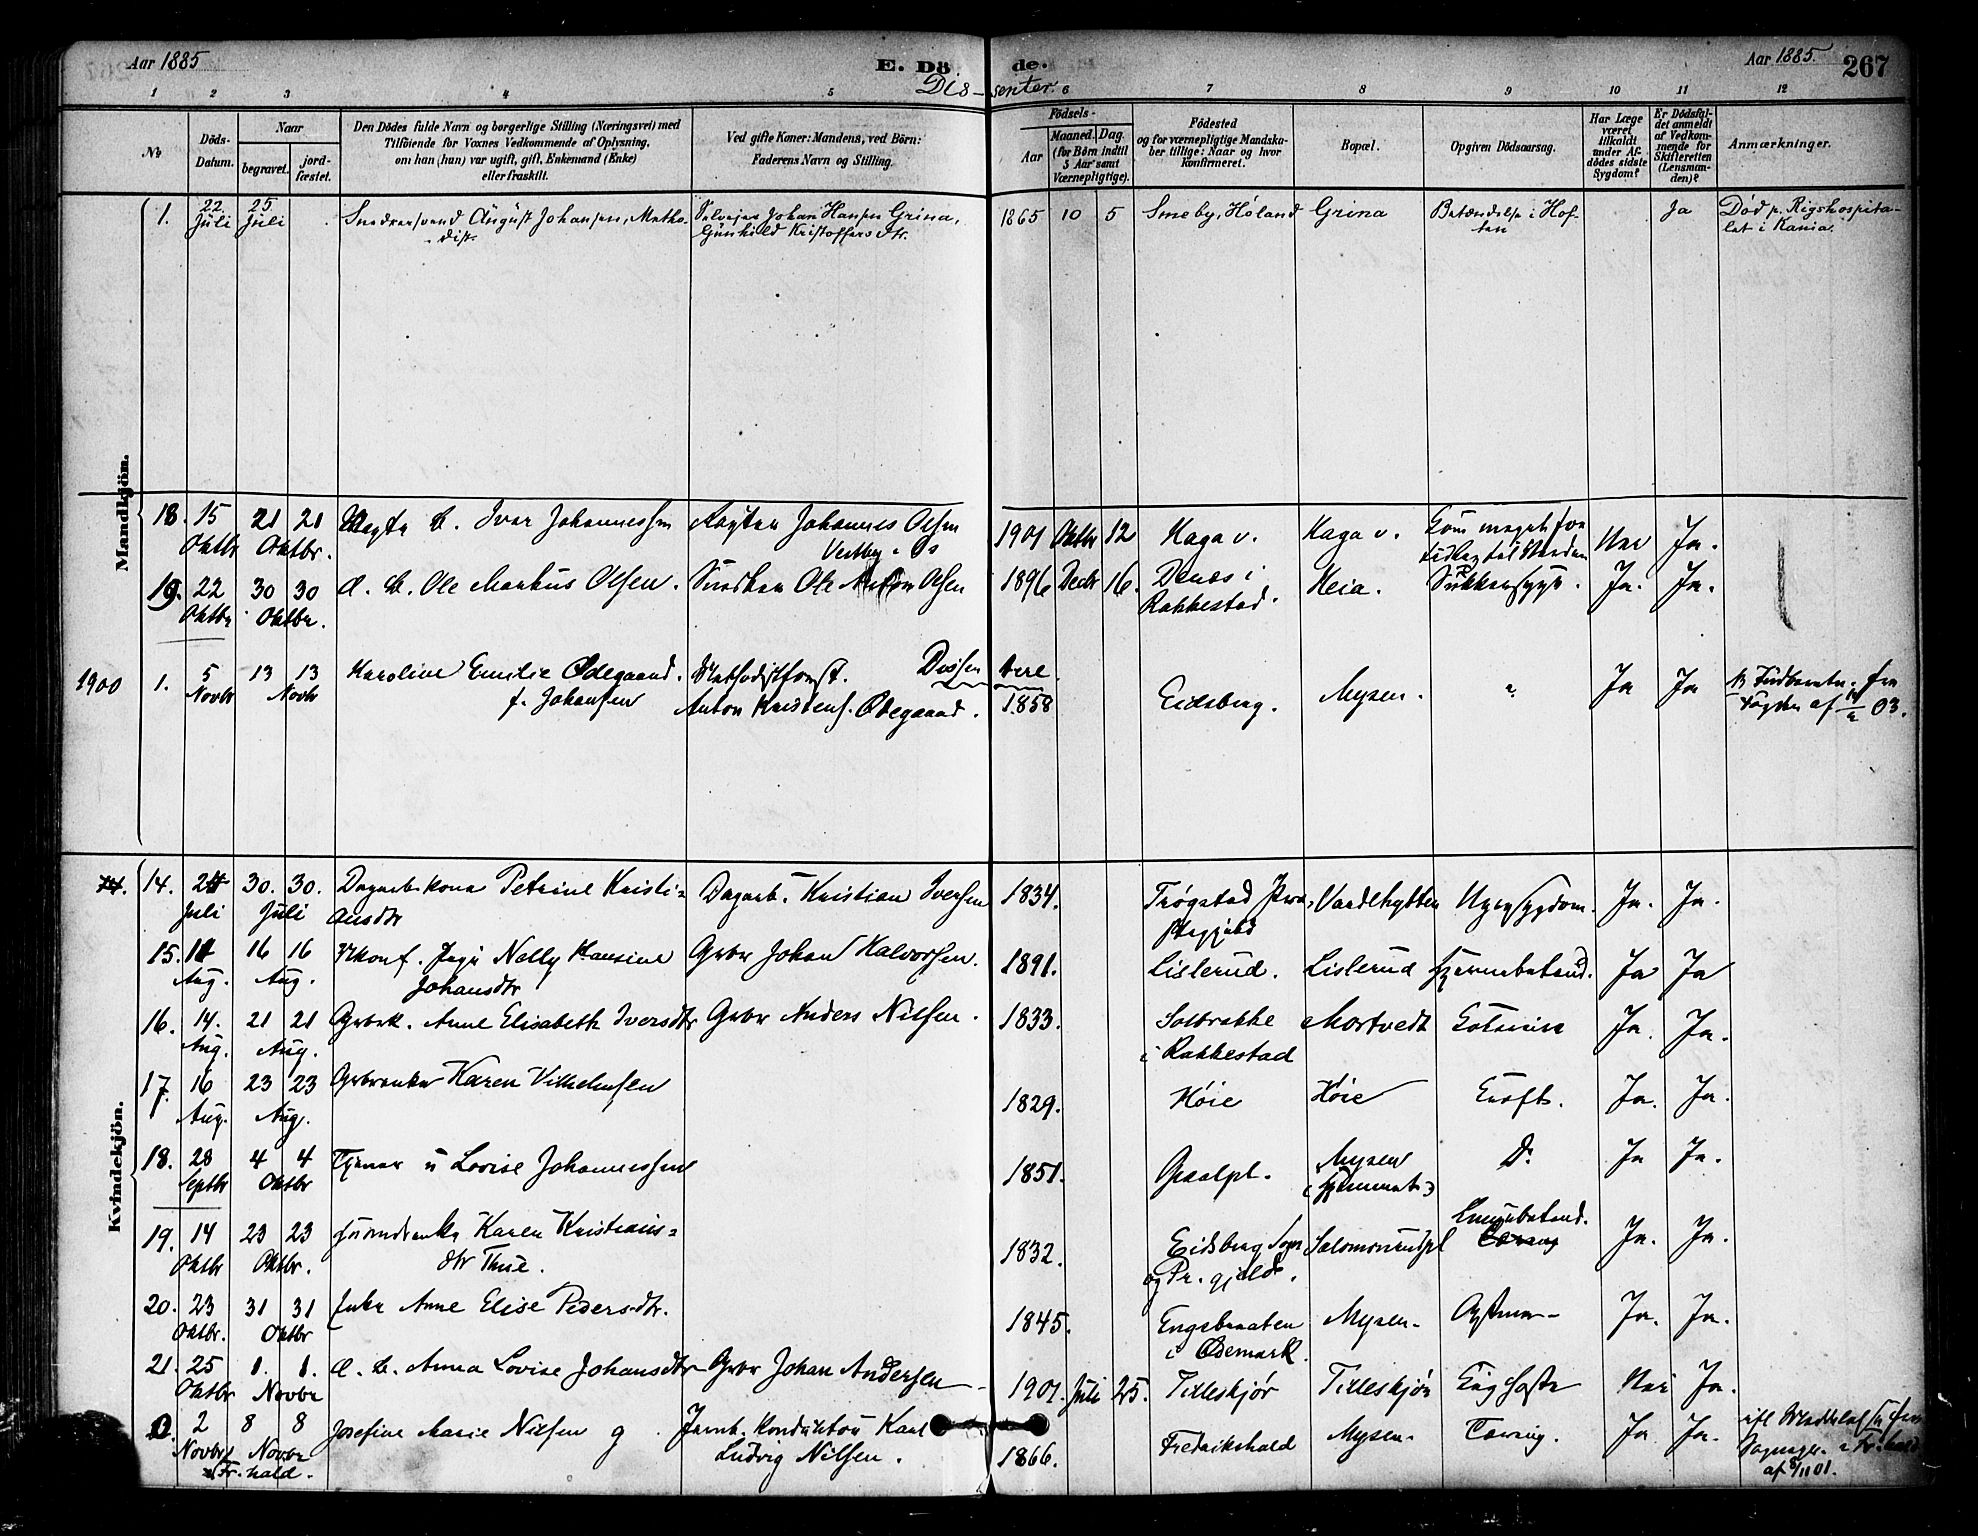 Aar 1885
E. Dö de.
Aar 1885.
267
Dis-senter.
1 2 3 4 5 6 7 8 9 10 11 12
№
Döds-
Datum.
Naar
begravet.
jord-
fæstet.
Den Dödes fulde Navn og borgerlige Stilling (Næringsvei) med
Tilföiende for Voxnes Vedkommende af Oplysning,
om han (hun) var ugift, gift, Enkemand (Enke)
eller fraskilt.
Ved gifte Koner: Mandens, ved Börn:
Faderens Navn og Stilling.
Födsels-
Aar
Maaned. Dag.
(for Börn indtil
5 Aar samt
Værnepligtige).
Födested
og for værnepligtige Mandska-
ber tillige: Naar og hvor
Konfirmeret.
Bopæl.
Opgiven Dödsaarsag.
Har Læge
været
tilkaldt
under Af-
dödes sidste
Sygdom?
Er Dödsfal-
det anmeldt
af Vedkom-
mende for
Skifteretten
(Lensman-
den)?
Anmærkninger.
Mandkjön.
1. 22 Juli 25 Juli August Johansen, Metho-
dist
Johan Hansen Grina,
Gunhild Kristoffersdtr.
1865 10 5 Smeby, Höland Grina Betændelse i Hof-
ten
Ja Död p. Rigshospita-
let i Kania.
18. 15 Oktbr 21 21 Oktbr. Ivar Johannessen Johannes Olsen
Vestby i Os
1901 Oktbr 12 Haga v. Haga v. Nei Ja.
19. 22 Oktbr 30 30 Oktbr. Ole Markus Olsen. Ole Anton Olsen
1896 Decbr 16. Denæs i
Rakkestad. Heia. Ja. Ja.
Dissen tere
1900 1. 5 Novbr 13 13 Novbr Karoline Emilie Ödegaard.
f. Johansen
Methodistforst.
Anton Kristens. Ödegaard.
1858 Eidsberg. Mysen. Ja Ja
03.
Kvindekjön.
14. 24 Juli 30. 30. Juli Dagarb.kone Petrine Kristi=
ansdtr
Dagarb. Kristian Iversen
1834. Trögstad Præ=
stegjeld Vardehytten Ja. Ja.
15. 11 Aug. 16 16 Aug. Ukonf. Pige Nelly Hansine
Johansdtr
Grbr Johan Halvorsen.
1891. Lislerud. Lislerud Hjernebetænd. Ja Ja
16. 14. Aug. 21 21 Aug. Grbrk. Anne Elisabeth Iversdtr Grbr Anders Nilsen.
1833. Solbrække
i Rakkestad Mortvedt Ja. Ja.
17. 16 Aug. 23 23 Aug. Grbrenke Karen Vilhelmsen
1829. Höie Höie Kræft. Ja. Ja.
18. 28 Septbr 4 4 Oktbr Tjener u Lovise Johannessen
1851. Mysen D. Ja Ja.
19. 14 Oktbr 23 23 Oktbr. Karen Kristians=
dtr Thue.
1832. Eidsberg Sogn
og Pr.gjeld. Lungebetænd. Ja. Ja.
20. 23 Oktbr. 31 31 Oktbr Enke Anne Elise Pedersdtr.
1845. Engebraaten
i Ödemark. Mysen. Ja. Ja.
21. 25 Oktbr 1. 1. Novbr d. b. Anna Lovise Johansdtr Grbr Johan Andersen
1901. Juli 25. Tilleskjör Tilleskjör Nei Ja.
2 Novbr 8 8 Novbr
i Fr.hald.
Josefine Marie Nilsen g Jernb. Konduktör Karl
Ludvig Nilsen.
1866. Fredrikshald Mysen. Tæring. Ja Ja.
Fr.hald
af 8/11 01.